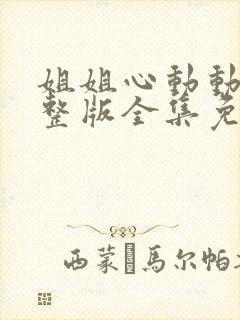 姐姐心動動
整版全集免
西蒙�馬尔帕